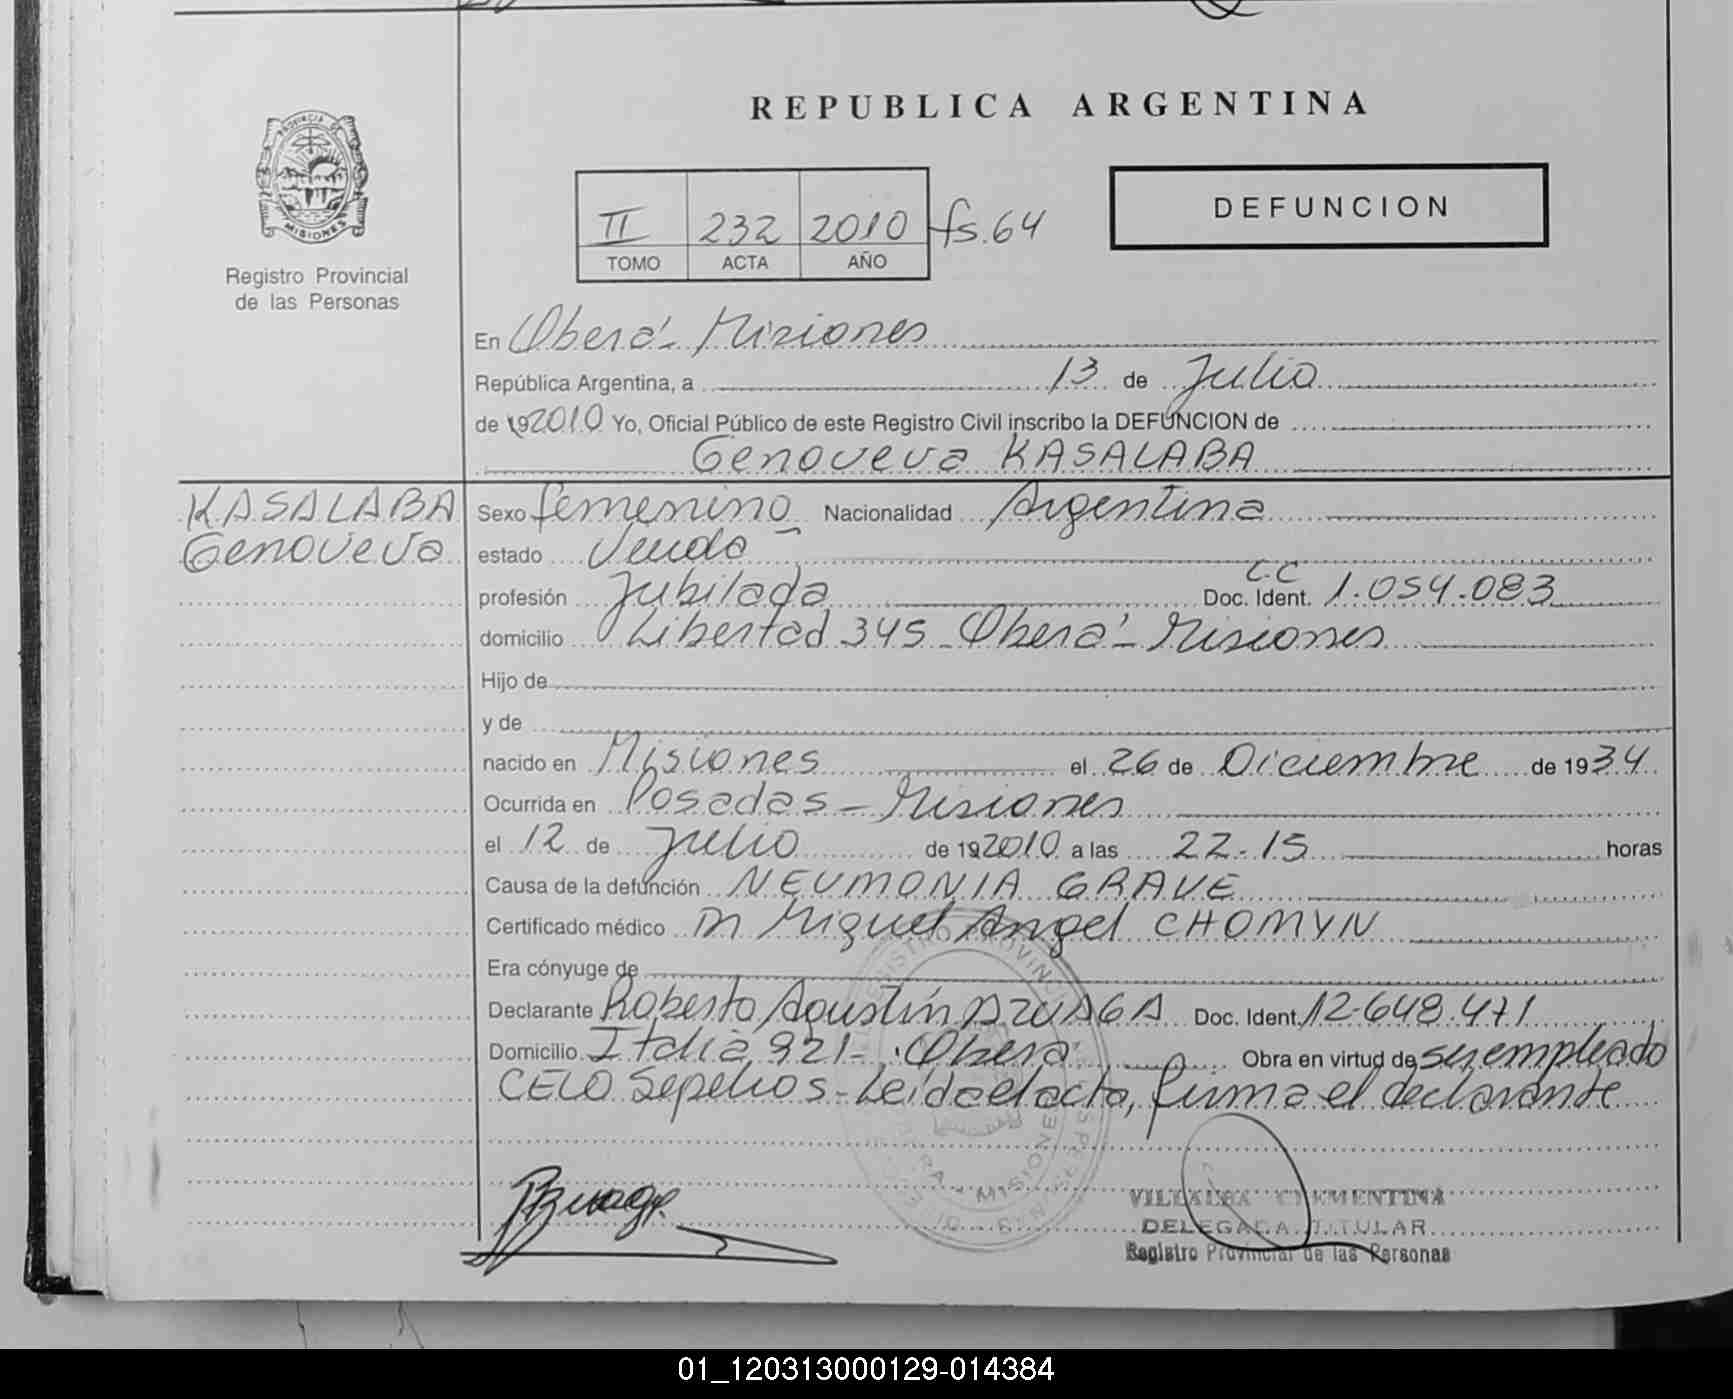 REPUBLICA ARGENTINA
PROVINCIA DE
MISIONES
Registro Provincial
de las Personas
II 232 2010 fs.64
TOMO ACTA AÑO
DEFUNCION
En Oberá - Misiones
República Argentina, a 13 de Julio
de 192010 Yo, Oficial Público de este Registro Civil inscribo la DEFUNCION de
Genoveva KASALABA
KASALABA
Genoveva
Sexo femenino Nacionalidad Argentina
estado Viuda
profesión Jubilada Doc. Ident. C.C 1.054.083
domicilio Libertad 345 - Oberá - Misiones
Hijo de
y de
nacido en Misiones el 26 de Diciembre de 1934
Ocurrida en Posadas - Misiones
el 12 de Julio de 192010 a las 22-15 horas
Causa de la defunción NEUMONIA GRAVE
Certificado médico Dr Miguel Angel CHOMYN
Era cónyuge de
Declarante Roberto Agustín AZUAGA Doc. Ident. 12.648.471
Domicilio Italia 921 - Oberá Obra en virtud de ser empleado
CELO Sepelios - Leída el acta, firma el declarante
VILLALBA CLEMENTINA
DELEGADA TITULAR
Registro Provincial de las Personas
01_120313000129-014384